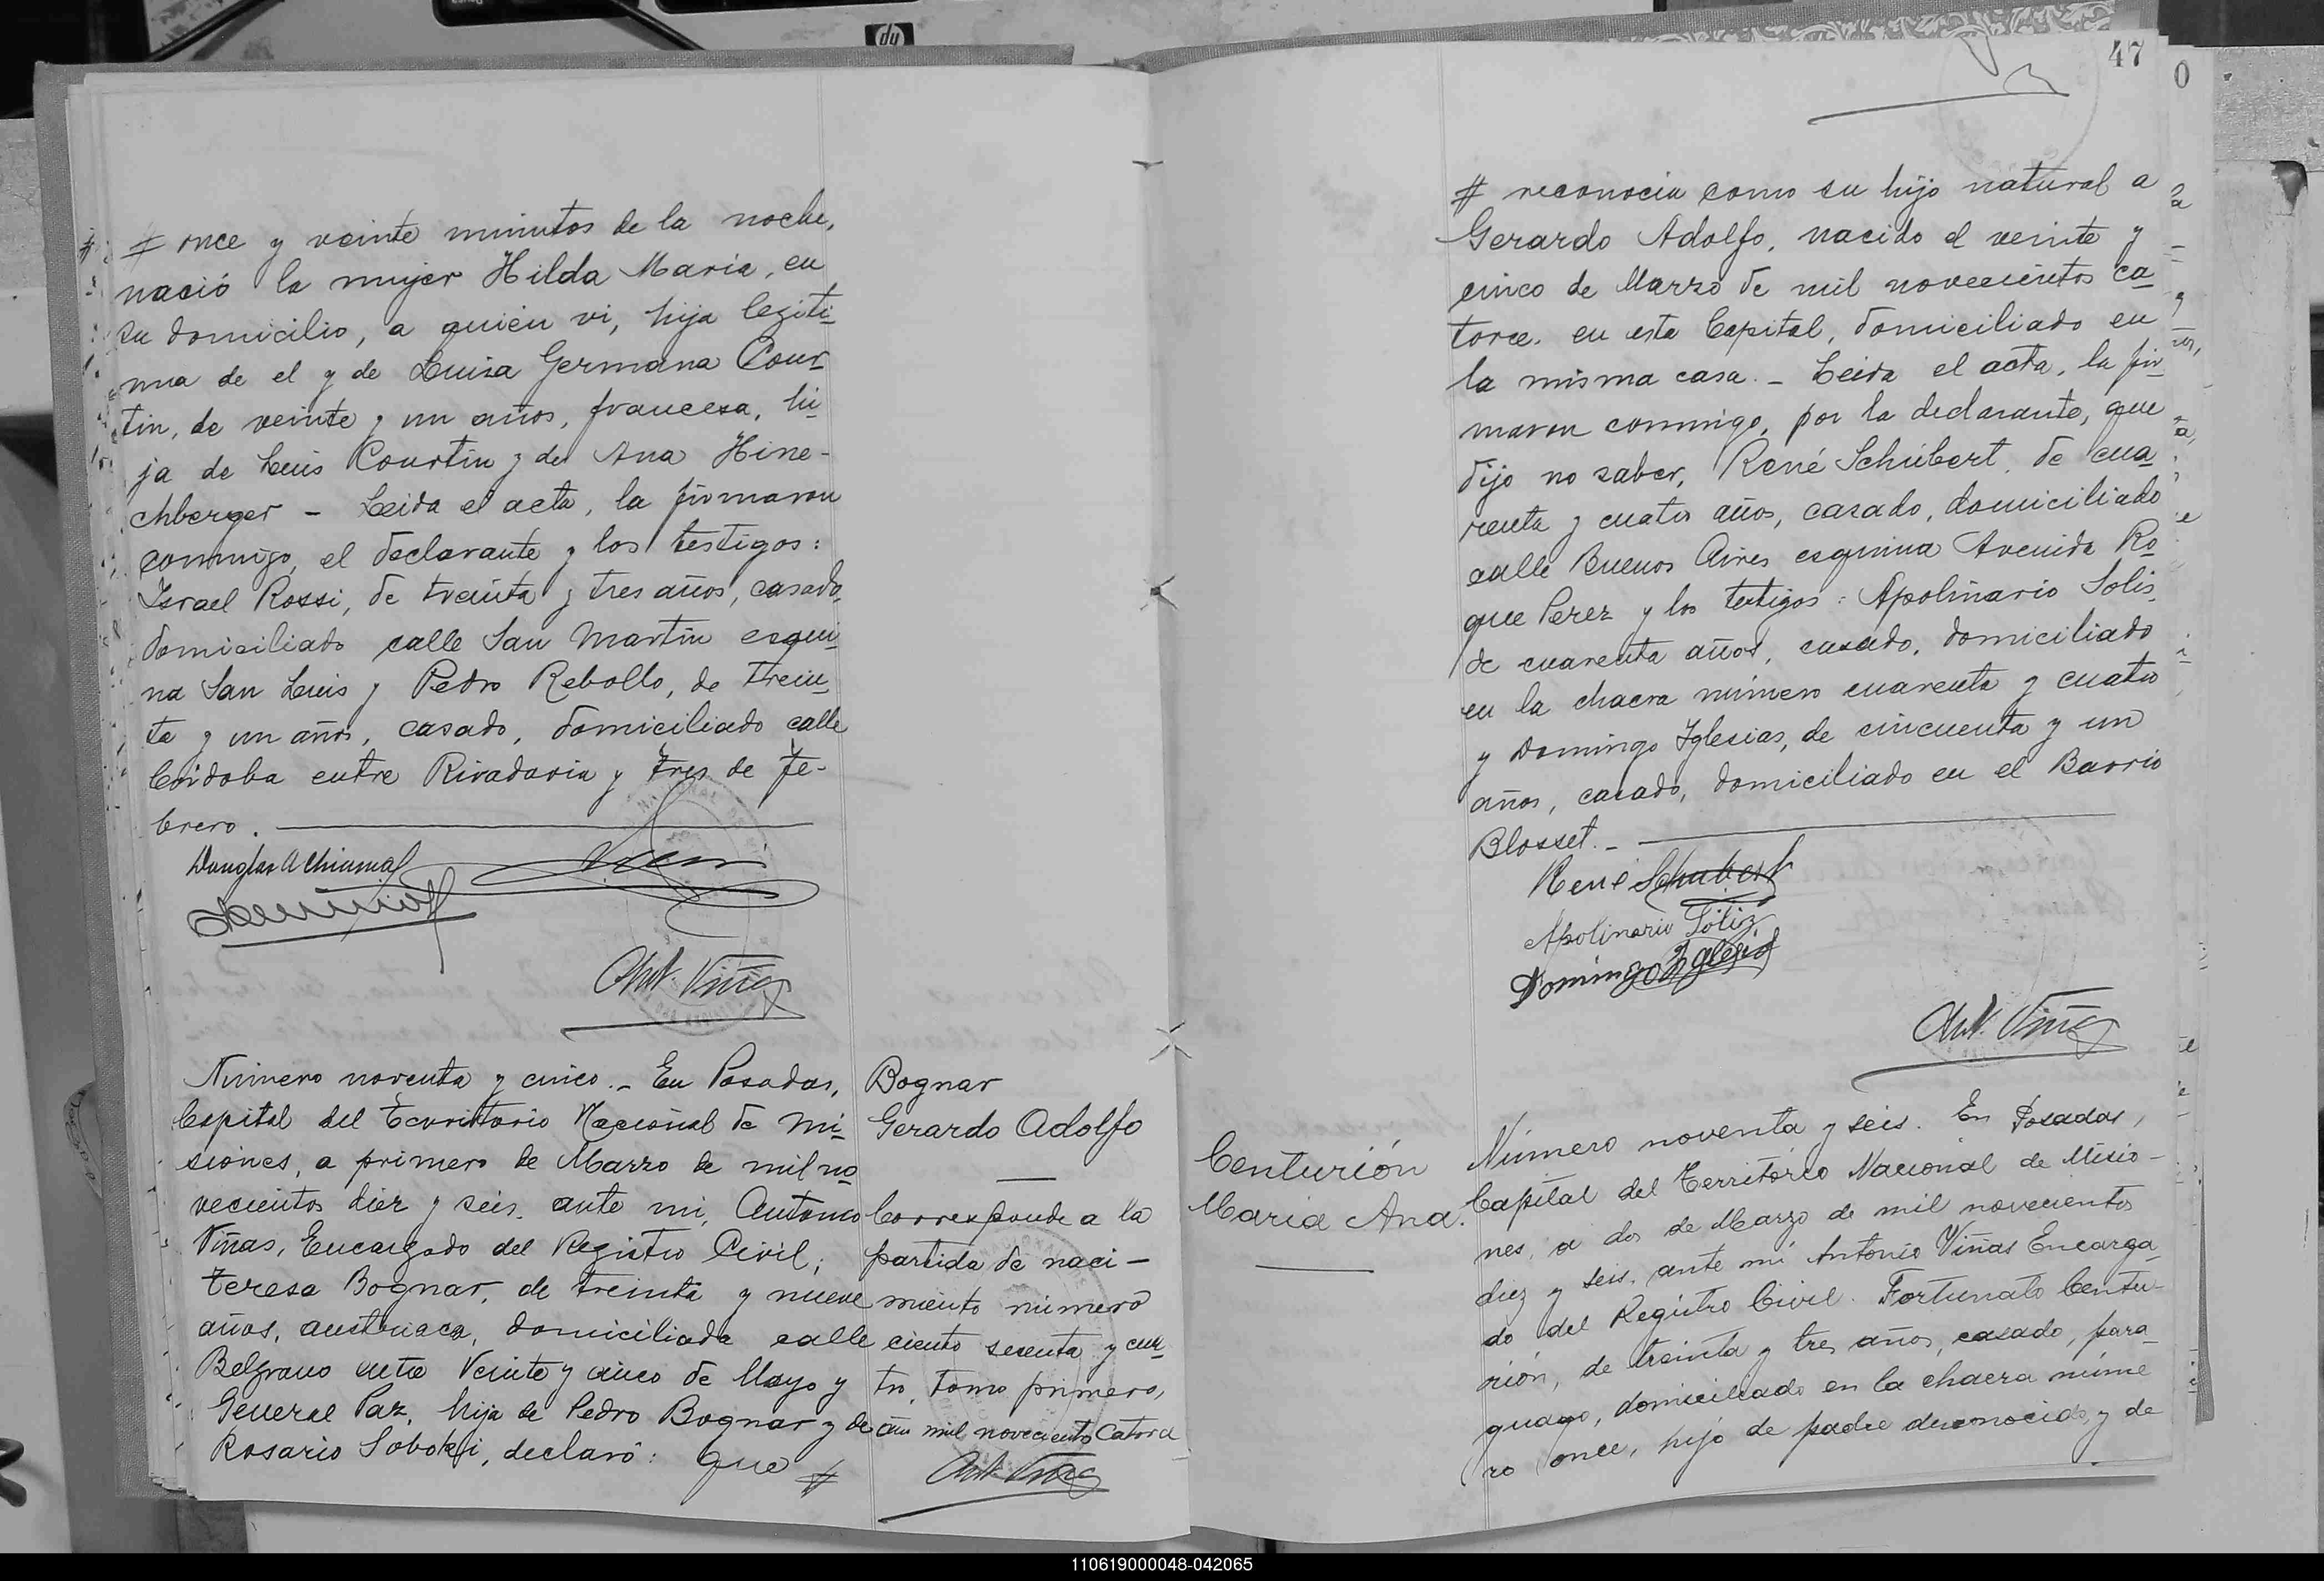 # once y veinte minutos de la noche,
nació la mujer Hilda Maria, en
su domicilio, a quien vi, hija legiti-
ma de el y de Luisa Germana Cour-
tin, de veinte y un años, francesa, hi-
ja de Luis Courtin y de Ana Hine-
chberger - Leida el acta, la firmaron
conmigo, el declarante y los testigos:
Israel Rossi, de treinta y tres años, casado,
domiciliado calle San Martin esqui-
na San Luis y Pedro Rebollo, de trein-
ta y un años, casado, domiciliado calle
Córdoba entre Rivadavia y tres de Fe-
brero.
Ant. Viñas
Número noventa y cinco.- En Posadas,
Capital del Territorio Nacional de Mi-
siones, a primero de Marzo de mil no-
vecientos diez y seis, ante mi, Antonio
Viñas, Encargado del Registro Civil,
Teresa Bognar, de treinta y nueve
años, austriaca, domiciliada calle
Belgrano entre Veinte y cinco de Mayo y
General Paz, hija de Pedro Bognar y de
Rosario Sobokfi, declaró: que #
Bognar
Gerardo Adolfo
Corresponde a la
partida de naci-
miento número
ciento sesenta y cua-
tro, tomo primero,
año mil novecientos catorce
Ant. Viñas
47
0
# reconocia como su hijo natural a
Gerardo Adolfo, nacido el veinte y
cinco de Marzo de mil novecientos ca-
torce, en esta Capital, domiciliado en
la misma casa.- Leida el acta, la fir-
maron conmigo, por la declarante, que
dijo no saber, René Schubert, de cua-
renta y cuatro años, casado, domiciliado
calle Buenos Aires esquina Avenida Ro-
que Perez y los testigos: Apolinario Solis,
de cuarenta años, casado, domiciliado
en la chacra número cuarenta y cuatro
y Domingo Iglesias, de cincuenta y un
años, casado, domiciliado en el Barrio
Blosset.-
René Schubert
Apolinario Soliz
Domingo Iglesias
Ant. Viñas
Centurión
Maria Ana.
Número noventa y seis. En Posadas,
Capital del Territorio Nacional de Misio-
nes, a dos de Marzo de mil novecientos
diez y seis, ante mi Antonio Viñas Encarga-
do del Registro Civil. Fortunato Centu-
rión, de treinta y tres años, casado, para-
guayo, domiciliado en la chacra núme-
ro once, hijo de padre desconocido y de
110619000048-042065